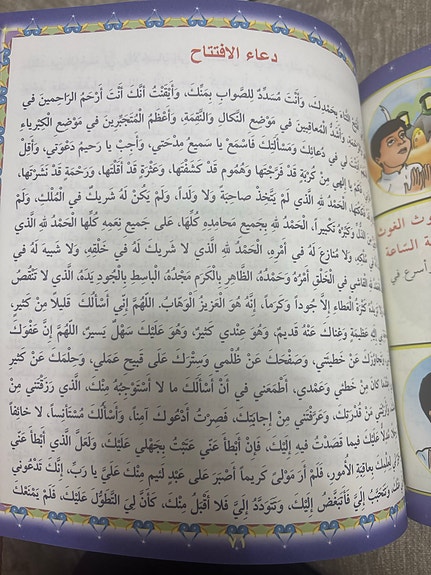 دعاء الافتتاح
الثَّناءَ بِحَمْدِكَ، وَأَنْتَ مُسَدِّدٌ لِلصَّوابِ بِمَنِّكَ، وَأَيْقَنْتُ أَنَّكَ أَنْتَ أَرْحَمُ الرّاحِمينَ في
وَأَشَدُّ الْمُعاقِبينَ في مَوْضِعِ النَّكالِ وَالنَّقِمَةِ، وَأَعْظَمُ الْمُتَجَبِّرينَ في مَوْضِعِ الْكِبْرِياءِ
لي في دُعائِكَ وَمَسْأَلَتِكَ فَاسْمَعْ يا سَميعُ مِدْحَتي، وَأَجِبْ يا رَحيمُ دَعْوَتي، وَأَقِلْ
يا إِلهي مِنْ كُرْبَةٍ قَدْ فَرَّجْتَها وَهُمُومٍ قَدْ كَشَفْتَها، وَعَثْرَةٍ قَدْ أَقَلْتَها، وَرَحْمَةٍ قَدْ نَشَرْتَها،
الْحَمْدُ للهِ الَّذي لَمْ يَتَّخِذْ صاحِبَةً وَلا وَلَداً، وَلَمْ يَكُنْ لَهُ شَريكٌ في الْمُلْكِ، وَلَمْ
الذُّلِّ وَكَبِّرْهُ تَكْبيراً، الْحَمْدُ للهِ بِجَميعِ مَحامِدِهِ كُلِّها، عَلى جَميعِ نِعَمِهِ كُلِّها الْحَمْدُ للهِ الَّذي
في مُلْكِهِ، وَلا مُنازِعَ لَهُ في أَمْرِهِ، الْحَمْدُ للهِ الَّذي لا شَريكَ لَهُ في خَلْقِهِ، وَلا شَبيهَ لَهُ في
للهِ الْفاشي في الْخَلْقِ أَمْرُهُ وَحَمْدُهُ، الظّاهِرِ بِالْكَرَمِ مَجْدُهُ، الْباسِطِ بِالْجُودِ يَدَهُ، الَّذي لا تَنْقُصُ
كَثْرَةُ الْعَطاءِ إِلاّ جُوداً وَكَرَماً، إِنَّهُ هُوَ الْعَزيزُ الْوَهّابُ، اللّهُمَّ إِنّي أَسْأَلُكَ قَليلاً مِنْ كَثيرٍ،
إِلَيْهِ عَظيمَةٍ وَغِناكَ عَنْهُ قَديمٌ، وَهُوَ عِنْدي كَثيرٌ، وَهُوَ عَلَيْكَ سَهْلٌ يَسيرٌ، اللّهُمَّ إِنَّ عَفْوَكَ
وَتَجاوُزَكَ عَنْ خَطيئَتي، وَصَفْحَكَ عَنْ ظُلْمي وَسِتْرَكَ عَلى قَبيحِ عَمَلي، وَحِلْمَكَ عَنْ كَثيرِ
كانَ مِنْ خَطَئي وَعَمْدي، أَطْمَعَني في أَنْ أَسْأَلَكَ ما لا أَسْتَوْجِبُهُ مِنْكَ، الَّذي رَزَقْتَني مِنْ
مِنْ قُدْرَتِكَ، وَعَرَّفْتَني مِنْ إِجابَتِكَ، فَصِرْتُ أَدْعُوكَ آمِناً، وَأَسْأَلُكَ مُسْتَأْنِساً، لا خائِفاً
عَلَيْكَ فيما قَصَدْتُ فيهِ إِلَيْكَ، فَإِنْ أَبْطَأَ عَنّي عَتَبْتُ بِجَهْلي عَلَيْكَ، وَلَعَلَّ الَّذي أَبْطَأَ عَنّي
لِعِلْمِكَ بِعاقِبَةِ الأُمُورِ، فَلَمْ أَرَ مَوْلىً كَريماً أَصْبَرَ عَلى عَبْدٍ لَئيمٍ مِنْكَ عَلَيَّ يا رَبِّ، إِنَّكَ تَدْعُوني
وَتَتَحَبَّبُ إِلَيَّ فَأَتَبَغَّضُ إِلَيْكَ، وَتَتَوَدَّدُ إِلَيَّ فَلا أَقْبَلُ مِنْكَ، كَأَنَّ لِيَ التَّطَوُّلَ عَلَيْكَ، فَلَمْ يَمْنَعْكَ
الغوث
الساعة
أسرع في